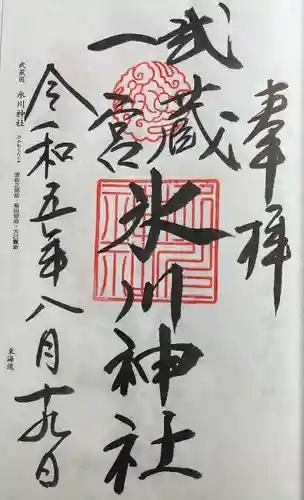 奉拝
武蔵
一宮
氷川神社
令和五年八月十九日
武蔵国 氷川神社
東海道